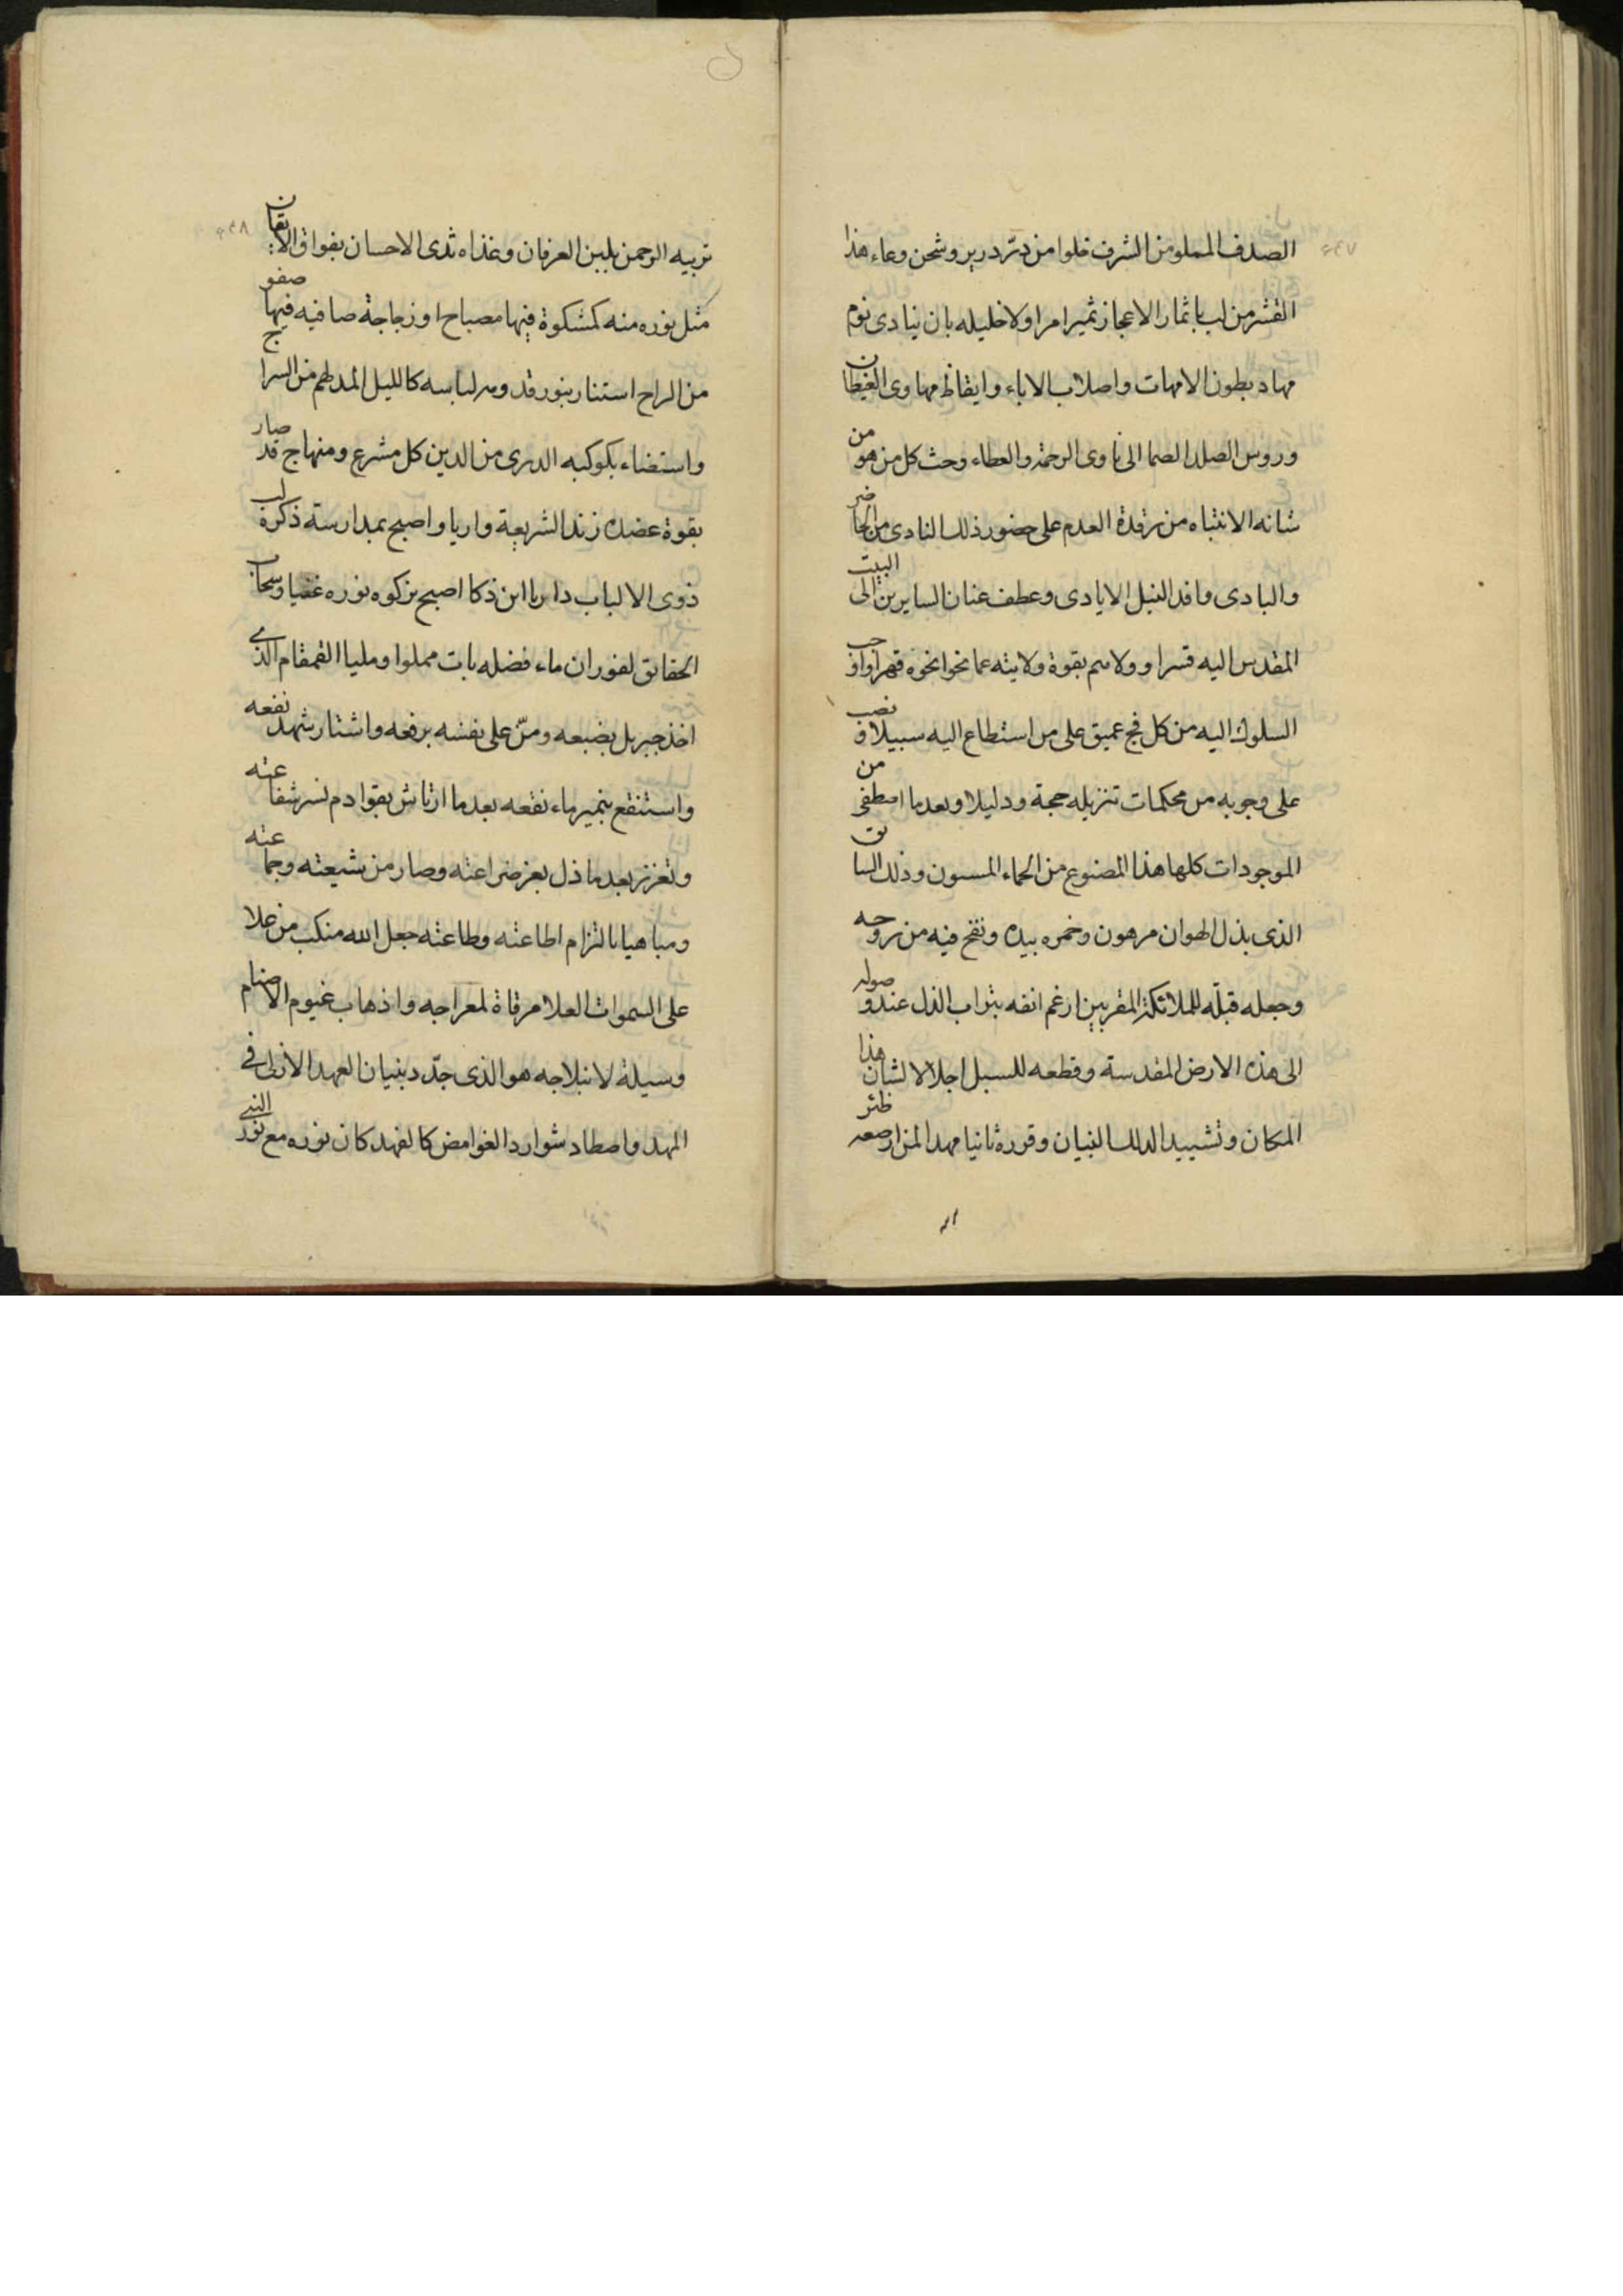 الصدف المملو من الشرف خلوا من در درير وشحن وعاء هذا
القشر من لب باثمار الاعجاز ثميرا مرا ولا خليله بان ينادى نوم
مهاد بطون الامهات واصلاب الاباء وايقاظ مهاوى الغيطان
ورؤس الصلد الصما الى ناوى الرحمة والعطاء وحث كل من هو من
شانه الانتباه من رقدة العدم على حضور ذلك النادى من الحاضر
والبادى وافد النيل الايادى وعطف عنان السايرين الى البيت
المقدس اليه قسرا وولاهم بقوة ولايته عما نحوا نحوه قهرا واوجب
السلوك اليه من كل فج عميق على من استطاع اليه سبيلا ونصب
على وجوبه من محكمات تنزيله حجة ودليلا وبعدما اصطفى من
الموجودات كلها هذا المصنوع من الحماء المسنون وذلك السابق
الذى بذل الهوان مرهون وخمره بيده ونفخ فيه من روحه
وجعله قبله للملائكة المقربين ارغم انفه بتراب الذل عند وصوله
الى هذه الارض المقدسة وقطعه للسبل اجلالا لشان هذا
المكان وتشييد الذلك البنيان وقرره ثانيا مهد المزار صعه ظئر
٤٤٧
٤٤٨
تربيه الرحمن بلبن العرفان وغذاه ثدى الاحسان بفواق الايقان
مثل نوره منه كمشكوة فيها مصباح او زجاجة صافيه فيها صفو
من الراح استنار بنور قدومه لباسه كالليل المدلهم من السراج
واستضاء بكوكبه الدرى من الدين كل مشرع ومنهاج قد صار
بقوة عضده زند الشريعة واريا واصبح بمدارسته ذكره لب
ذوى الالباب داريا ابن ذكا اصبح بزكوه نوره غضيا وسحاب
الحقائق لفوران ماء فضله بات مملوا ومليا القمقام الذى
اخذ جبريل بضبعه ومن على نفسه برفعه واشتار شهد نفعه
واستنقع بنمير ماء نقعه بعدما ارتاش بقوادم نسر شفاعته
وتعزز بعدما ذل بعز ضراعته وصار من شيعته وجماعته
ومباهيا بالتزام اطاعته وطاعته جعل الله منكب من علا
على السموات العلا مرقاة لمعراجه واذهاب غيوم الاصنام
وسيلة لانبلاجه هو الذى جدد بنيان العهد الازلى فى
المهد واصطاد شوارد الغوامض كالفهد كان نوره مع نور النبى